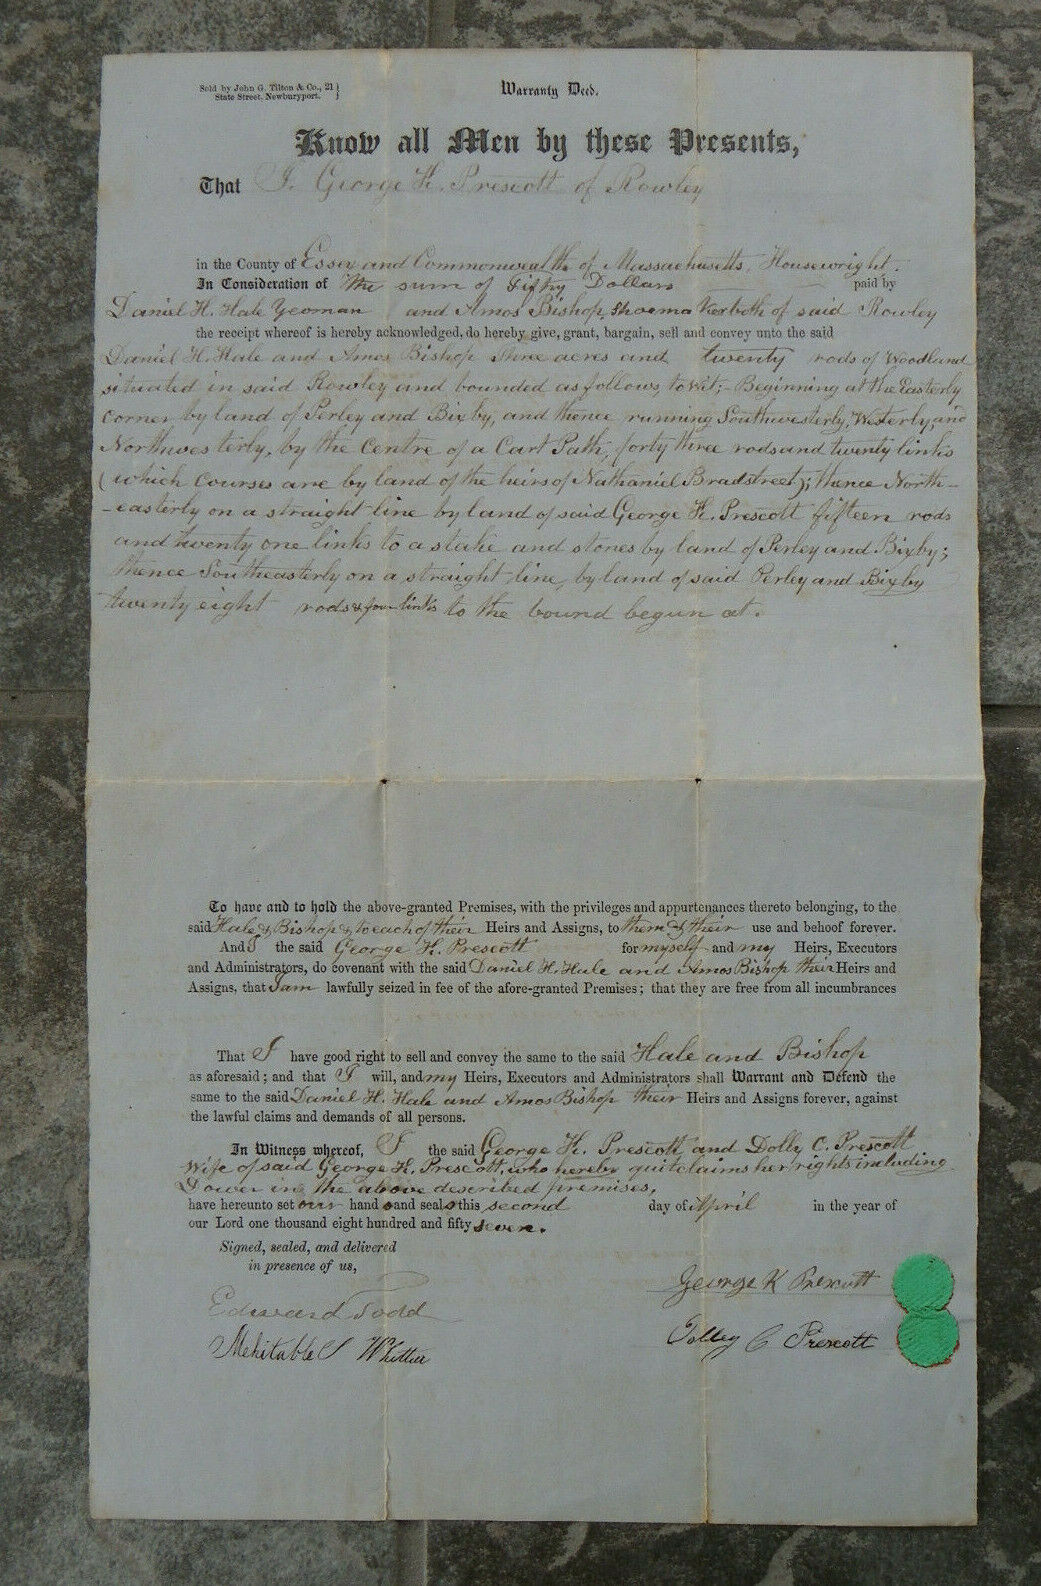 Sold by John G. Tilton & Co., 21
State Street, Newburyport.
Warranty Deed.
Know all Men by these Presents,
That I. George K. Prescott of Rowley
in the County of Essex and Commonwealth of Massachusetts, Housewright.
In Consideration of the sum of Fifty Dollars paid by
Daniel H. Hale Yeoman and Amos Bishop, Shoemaker both of said Rowley
the receipt whereof is hereby acknowledged, do hereby give, grant, bargain, sell and convey unto the said
Daniel H. Hale and Amos Bishop three acres and twenty rods of Woodland
situated in said Rowley and bounded as follows, to wit; - Beginning at the Easterly
corner by land of Perley and Bixby, and thence running Southwesterly, Westerly, and
Northwesterly, by the Centre of a Cart Path, forty three rods and twenty links
(which Courses are by land of the heirs of Nathaniel Bradstreet); thence North-
-easterly on a straight line by land of said George K. Prescott fifteen rods
and twenty one links to a stake and stones by land of Perley and Bixby;
thence Southeasterly on a straight line, by land of said Perley and Bixby
twenty eight rods & four links to the bound begun at.
To have and to hold the above-granted Premises, with the privileges and appurtenances thereto belonging, to the
said Hale & Bishop & to each of their Heirs and Assigns, to them & their use and behoof forever.
And I the said George K. Prescott for myself and my Heirs, Executors
and Administrators, do covenant with the said Daniel H. Hale and Amos Bishop their Heirs and
Assigns, that I am lawfully seized in fee of the afore-granted Premises; that they are free from all incumbrances
That I have good right to sell and convey the same to the said Hale and Bishop
as aforesaid; and that I will, and my Heirs, Executors and Administrators shall Warrant and Defend the
same to the said Daniel H. Hale and Amos Bishop their Heirs and Assigns forever, against
the lawful claims and demands of all persons.
In Witness whereof, I the said George K. Prescott, and Dolly C. Prescott
Wife of said George K. Prescott, who hereby quitclaims her rights including
Dower in the above described premises,
have hereunto set our hands and seals this second day of April in the year of
our Lord one thousand eight hundred and fifty seven.
Signed, sealed, and delivered
in presence of us,
George K Prescott
Edward Todd
Dolley C Prescott
Mehitable S Whittier